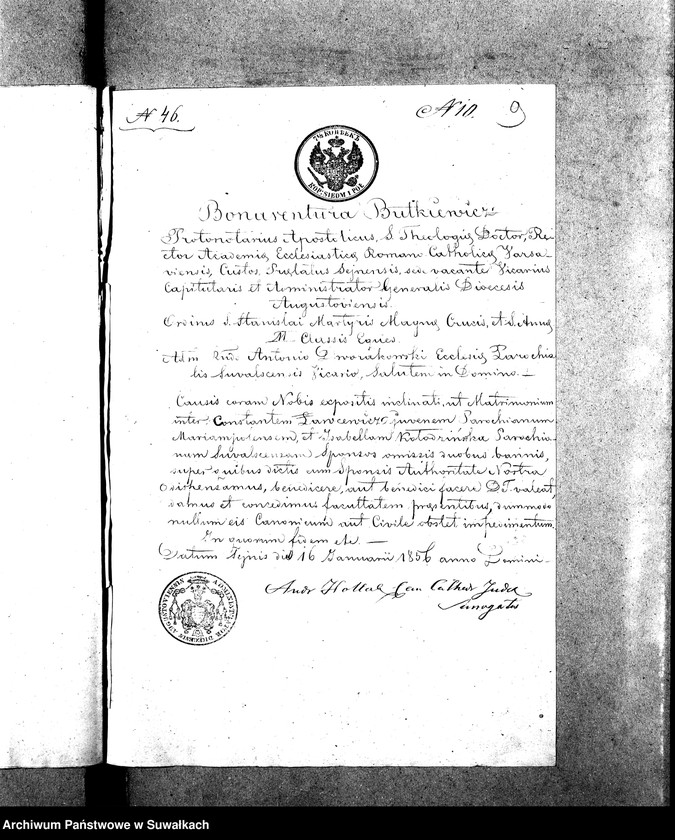 N 46.
N 10. 9
7½ КОПѢЕКЪ
KOP. SIEDM I PÓŁ
Bonaventura Butkiewicz
Protonotarius Apostolicus, S. Theologiæ Doctor, Re-
ctor Academiæ Ecclesiasticæ Romano Catholicæ Varsa-
viensis, Custos, Prælatus Sejnensis, sede vacante Vicarius
Capitularis et Administrator Generalis Dioecesis
Augustoviensis.
Ordinis S. Stanislai Martyris Magnæ Crucis, et S. Annæ
Classis Eques.
Adm Rndo Antonio Dworakowski Ecclesiæ Parochia
lis Suvalscensis Vicario, Salutem in Domino. —
Causis coram Nobis expositis inclinati, ut Matrimonium
inter Constantem juvenem Parochianum
Mariampolensem, et Isabellam Kołodzińska Parochia-
num Suvalscensam Sponsos omissis duobus bannis,
super quibus dictis cum Sponsis Authoritate Nostra
dispensamus, benedicere, aut benedici facere DT valeat,
damus et concedimus facultatem præsentibus, dummodo
nullum eis Canonicum aut Civile obstet impedimentum.
In quorum fidem etc. —
Datum Sejnis die 16 Januarii 1856 anno Domini.
Andr Hollak Can Cathed Judex
Surrogatus
DIOECESIS AUGUSTOVIENSIS
Archiwum Państwowe w Suwałkach